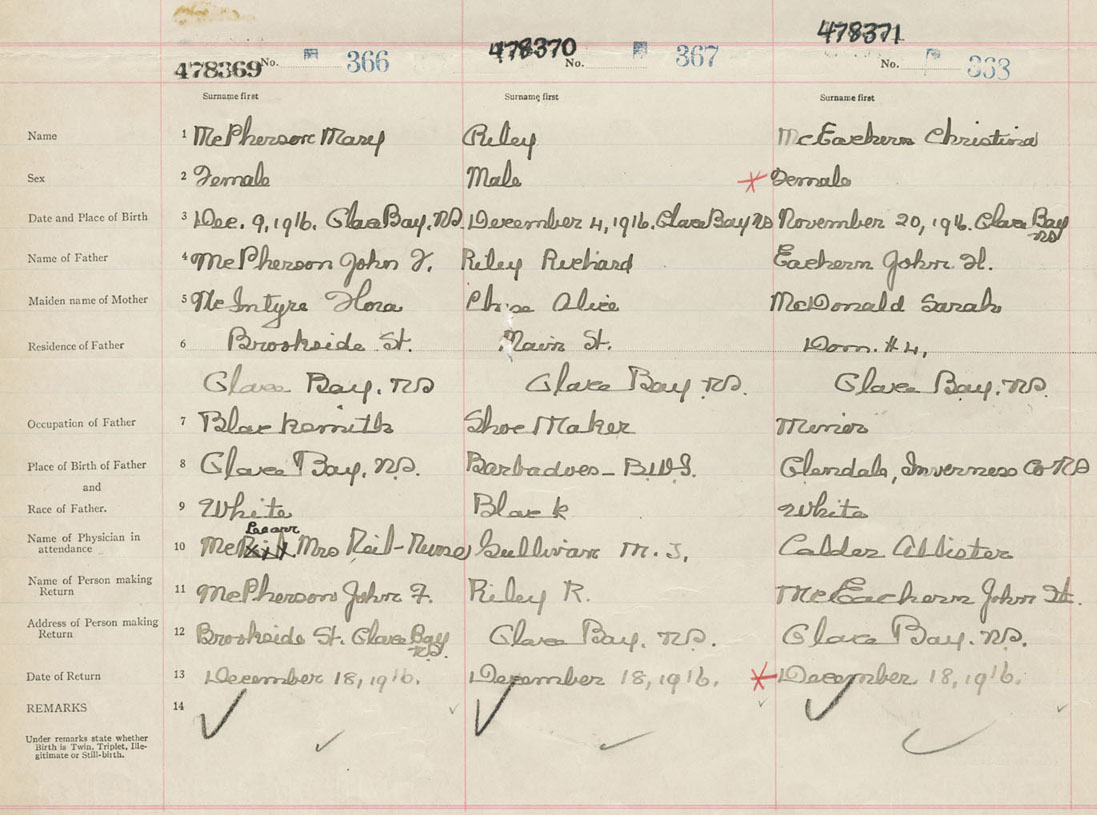 478369 No. 366 478370 No. 367 478371 No. 368
Surname first Surname first Surname first
Name 1 McPherson Mary Riley McEachern Christina
Sex 2 Female Male Female
Date and Place of Birth 3 Dec. 9, 1916. Glace Bay. NS. December 4, 1916. Glace Bay NS November 20, 1916. Glace Bay
NS
Name of Father 4 McPherson John F. Riley Richard Eachern John H.
Maiden name of Mother 5 McIntyre Flora Alice McDonald Sarah
Residence of Father 6 Brookside St. Main St. Dom. #4,
Glace Bay. NS Glace Bay NS. Glace Bay. NS.
Occupation of Father 7 Blacksmith Shoe Maker Miner
Place of Birth of Father 8 Glace Bay. NS. Barbadoes - B.W.I. Glendale, Inverness Co NS
and
Race of Father. 9 White Black White
Name of Physician in
attendance 10 Mc Mrs Neil-Nurse Sullivan M. J. Calder Allister
Name of Person making
Return 11 McPherson John F. Riley R. McEachern John H.
Address of Person making
Return 12 Brookside St. Glace Bay Glace Bay. NS. Glace Bay. NS.
NS.
Date of Return 13 December 18, 1916. December 18, 1916. December 18, 1916.
REMARKS 14
Under remarks state whether
Birth is Twin, Triplet, Ille-
gitimate or Still-birth.